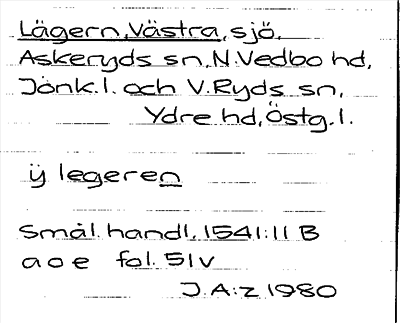 Lägern, Västra, sjö,
Askeryds sn, N. Vedbo hd,
Jönk. l. och V. Ryds sn,
Ydre hd, Östg. l.
ÿ legeren
Smål. handl. 1541:11 B
a o e fol. 51v
J.A:z 1980